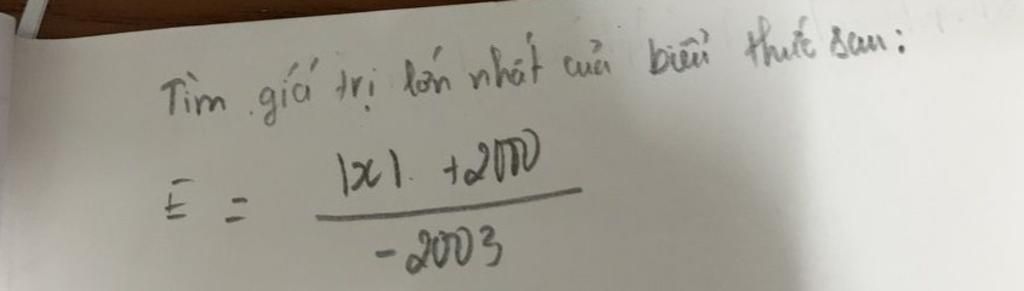 Tìm giá trị lớn nhất của biểu thức sau:
E = |x| + 2000
-2003